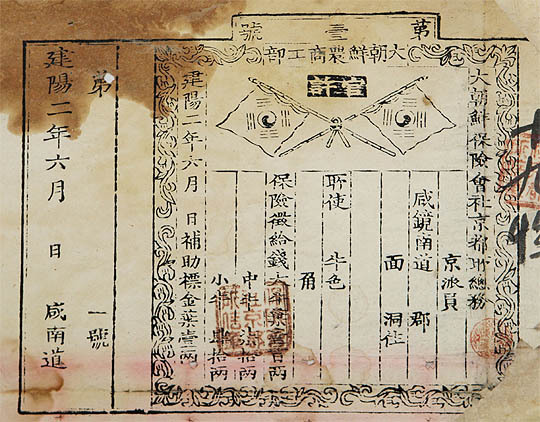 第壹號
大朝鮮農商工部
官許
大朝鮮保險會社京都所總務
京派員
咸鏡南道 郡
面 洞住
所使 牛色
角
保險徵給錢大牛葉壹百兩
中牛 柒拾兩
小牛 肆拾兩
建陽二年六月 日補助標金葉壹兩
第 一號
建陽二年六月 日 咸南道